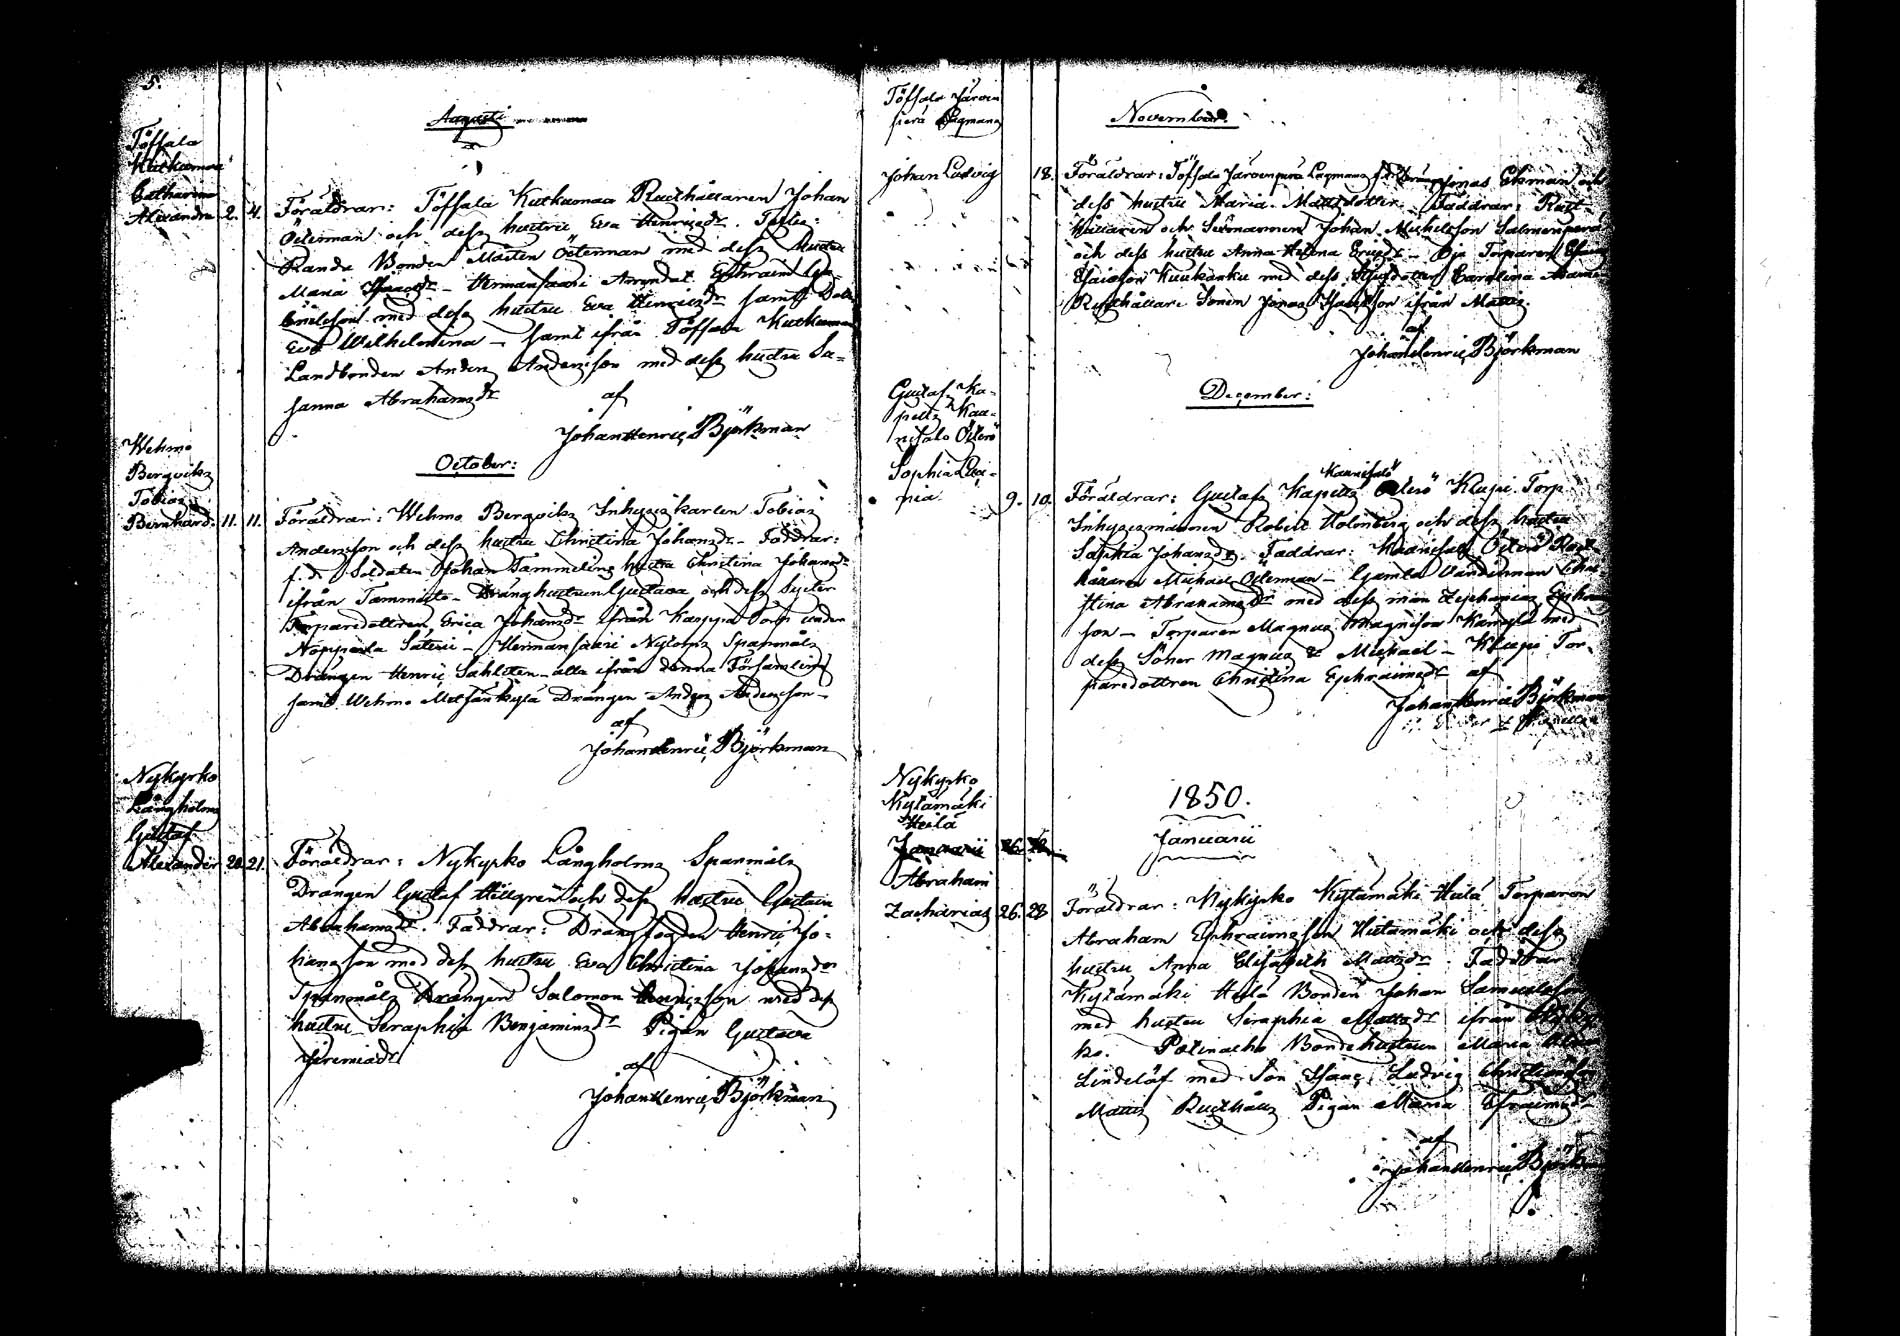 5.
Augusti
Töffsala
Kutkumaa
Catharina
Alexandra 2. 4.
Föräldrar: Töffsala Kutkumaa Rusthållaren Johan
Österman och dess hustru Eva Henricsdr. Testes:
Randa Bonden Mårten Österman med dess hustru
Maria Isaacsdr - Hermansaari Ephraim
med dess hustru Eva Henricsdr samt
Eva Wilhelmina - samt ifrån Töffsala Kutkumaa
Landbonden Anders Andersson med dess hustru Su-
sanna Abrahamsdr
af
Johan Henric Björkman
October:
Wehmo
Bergviks
Tobias
Bernhard. 11. 11.
Föräldrar: Wehmo Bergviks Inhyseskarlen Tobias
Andersson och dess hustru Christina Johansdr - Faddrar:
f. d. Soldaten Johan Tammelins hustru Christina Johansdr
ifrån Tammisto - Dränghustrun Gustava och dess Syster
Torparedottren Erica Johansdr ifrån Kayppa Torp under
Nopperla Säteri - Hermansaari Nyloms Spanmåls
Drängen Henric Sahlsten - alla ifrån denna Församling
samt Wehmo Metsänkylä Drängen Anders Andersson -
af
Johan Henric Björkman
Nykyrko
Långholms
Gustaf
Alexander 20. 21.
Föräldrar: Nykyrko Långholms Spanmåls
Drängen Gustaf Hellgren och dess hustru Gustava
Abrahamsdr. Faddrar: Drängfogden Henric Jo-
hansson med dess hustru Eva Christina Johansdr
Spanmåls Drängen Salomon Henricsson med dess
hustru Seraphia Benjaminsdr Pigan Gustava
Jeremiadr
af
Johan Henric Björkman
Töffsala Järven
perä Lagmans
November.
Johan Ludvig 18.
Föräldrar: Töffsala Järvenperä Lagmans Jonas Ekman och
dess hustru Maria Mattsdotter. Faddrar: Rust-
hållaren och Sexmannen Johan Michelsson Salmenperä
och dess hustru Anna Helena Ericsdr - Torparen
Esaiasson Kuukanku med dess Carolina
Rusthållare Sonen Jonas ifrån Mattis.
af
Johan Henric Björkman
December:
Gustafs Ka-
pells Kau-
nisalo Österö
Sophia Lavi-
nia 9. 10.
Kaunisalo
Föräldrar: Gustafs Kapells Österö Klupi Torp
Inhysesmannen Robert Holmberg och dess hustru
Sophia Johansdr. Faddrar: Kaunisalo Österö Rust-
hållaren Michael Österman - Gamla Chris-
tina Abrahamsdr med dess man Zephanias Ephraims
son - Torparen Magnus Magnusson med
dess Söner Magnus & Michael - Klupi Tor-
paredottren Christina Ephraimsdr af
Johan Henric Björkman
1850.
Januarii
Nykyrko
Kylämäki
Heilä
Januarii 26. 28.
Abraham
Zacharias 26. 28
Föräldrar: Nykyrko Kylämäki Heilä Torparen
Abraham Ephraimsson Kylämäki och dess
hustru Anna Elisabeth Mattsdr. Faddrar
Kylämäki Heilä Bonden Johan Samuelsson
med hustru Seraphia Mattsdr ifrån Nykyr-
ko. Palinaho Bondehustrun Maria
Lindelöf med Son Isaac Ludvig Christiansson
Mattis Rusthålls Pigan Maria Efraimsdr
af
Johan Henric Björkman